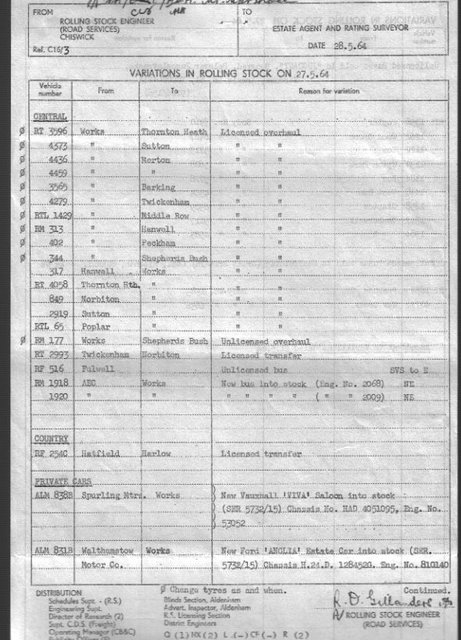 FROM TO
ROLLING STOCK ENGINEER
(ROAD SERVICES)
CHISWICK
ESTATE AGENT AND RATING SURVEYOR
Ref. C16/3 DATE 28.5.64
VARIATIONS IN ROLLING STOCK ON 27.5.64
Vehicle number From To Reason for variation
CENTRAL
Ø RT 3596 Works Thornton Heath Licensed overhaul
Ø 4373 " Sutton " "
Ø 4436 " Merton " "
Ø 4459 " " " "
Ø 3565 " Barking " "
Ø 4279 " Twickenham " "
Ø RTL 1429 " Middle Row " "
Ø RM 313 " Hanwell " "
Ø 402 " Peckham " "
Ø 344 " Shepherds Bush " "
317 Hanwell Works " "
RT 4058 Thornton Hth. " " "
849 Norbiton " " "
2919 Sutton " " "
RTL 65 Poplar " " "
Ø RM 177 Works Shepherds Bush Unlicensed overhaul
RT 2993 Twickenham Norbiton Licensed transfer
RF 516 Fulwell Unlicensed bus SVS to E
RM 1918 AEC Works New bus into stock (Eng. No. 2068) NE
1920 " " " " " " ( " " 2009) NE
COUNTRY
RF 254C Hatfield Harlow Licensed transfer
PRIVATE CARS
ALM 838B Spurling Mtrs. Works New Vauxhall 'VIVA' Saloon into stock
(SER 5732/15) Chassis No. HAD 4051095, Eng. No.
53052
ALM 831B Walthamstow Works New Ford 'ANGLIA' Estate Car into stock (SER.
Motor Co. 5732/15) Chassis H.24.D. 128452G. Eng. No. 810140
Ø Change tyres as and when. Continued.
DISTRIBUTION
Schedules Supt. - (R.S.) Blinds Section, Aldenham
Engineering Supt. Advert. Inspector, Aldenham
Director of Research (2) R.S. Licensing Section
Supt. C.D.S. (Freight) District Engineers
Operating Manager (CB&C)
Q (1) HX(2) L (-) CF (-) R (2)
R. D. Gellanders
A/ ROLLING STOCK ENGINEER
(ROAD SERVICES)